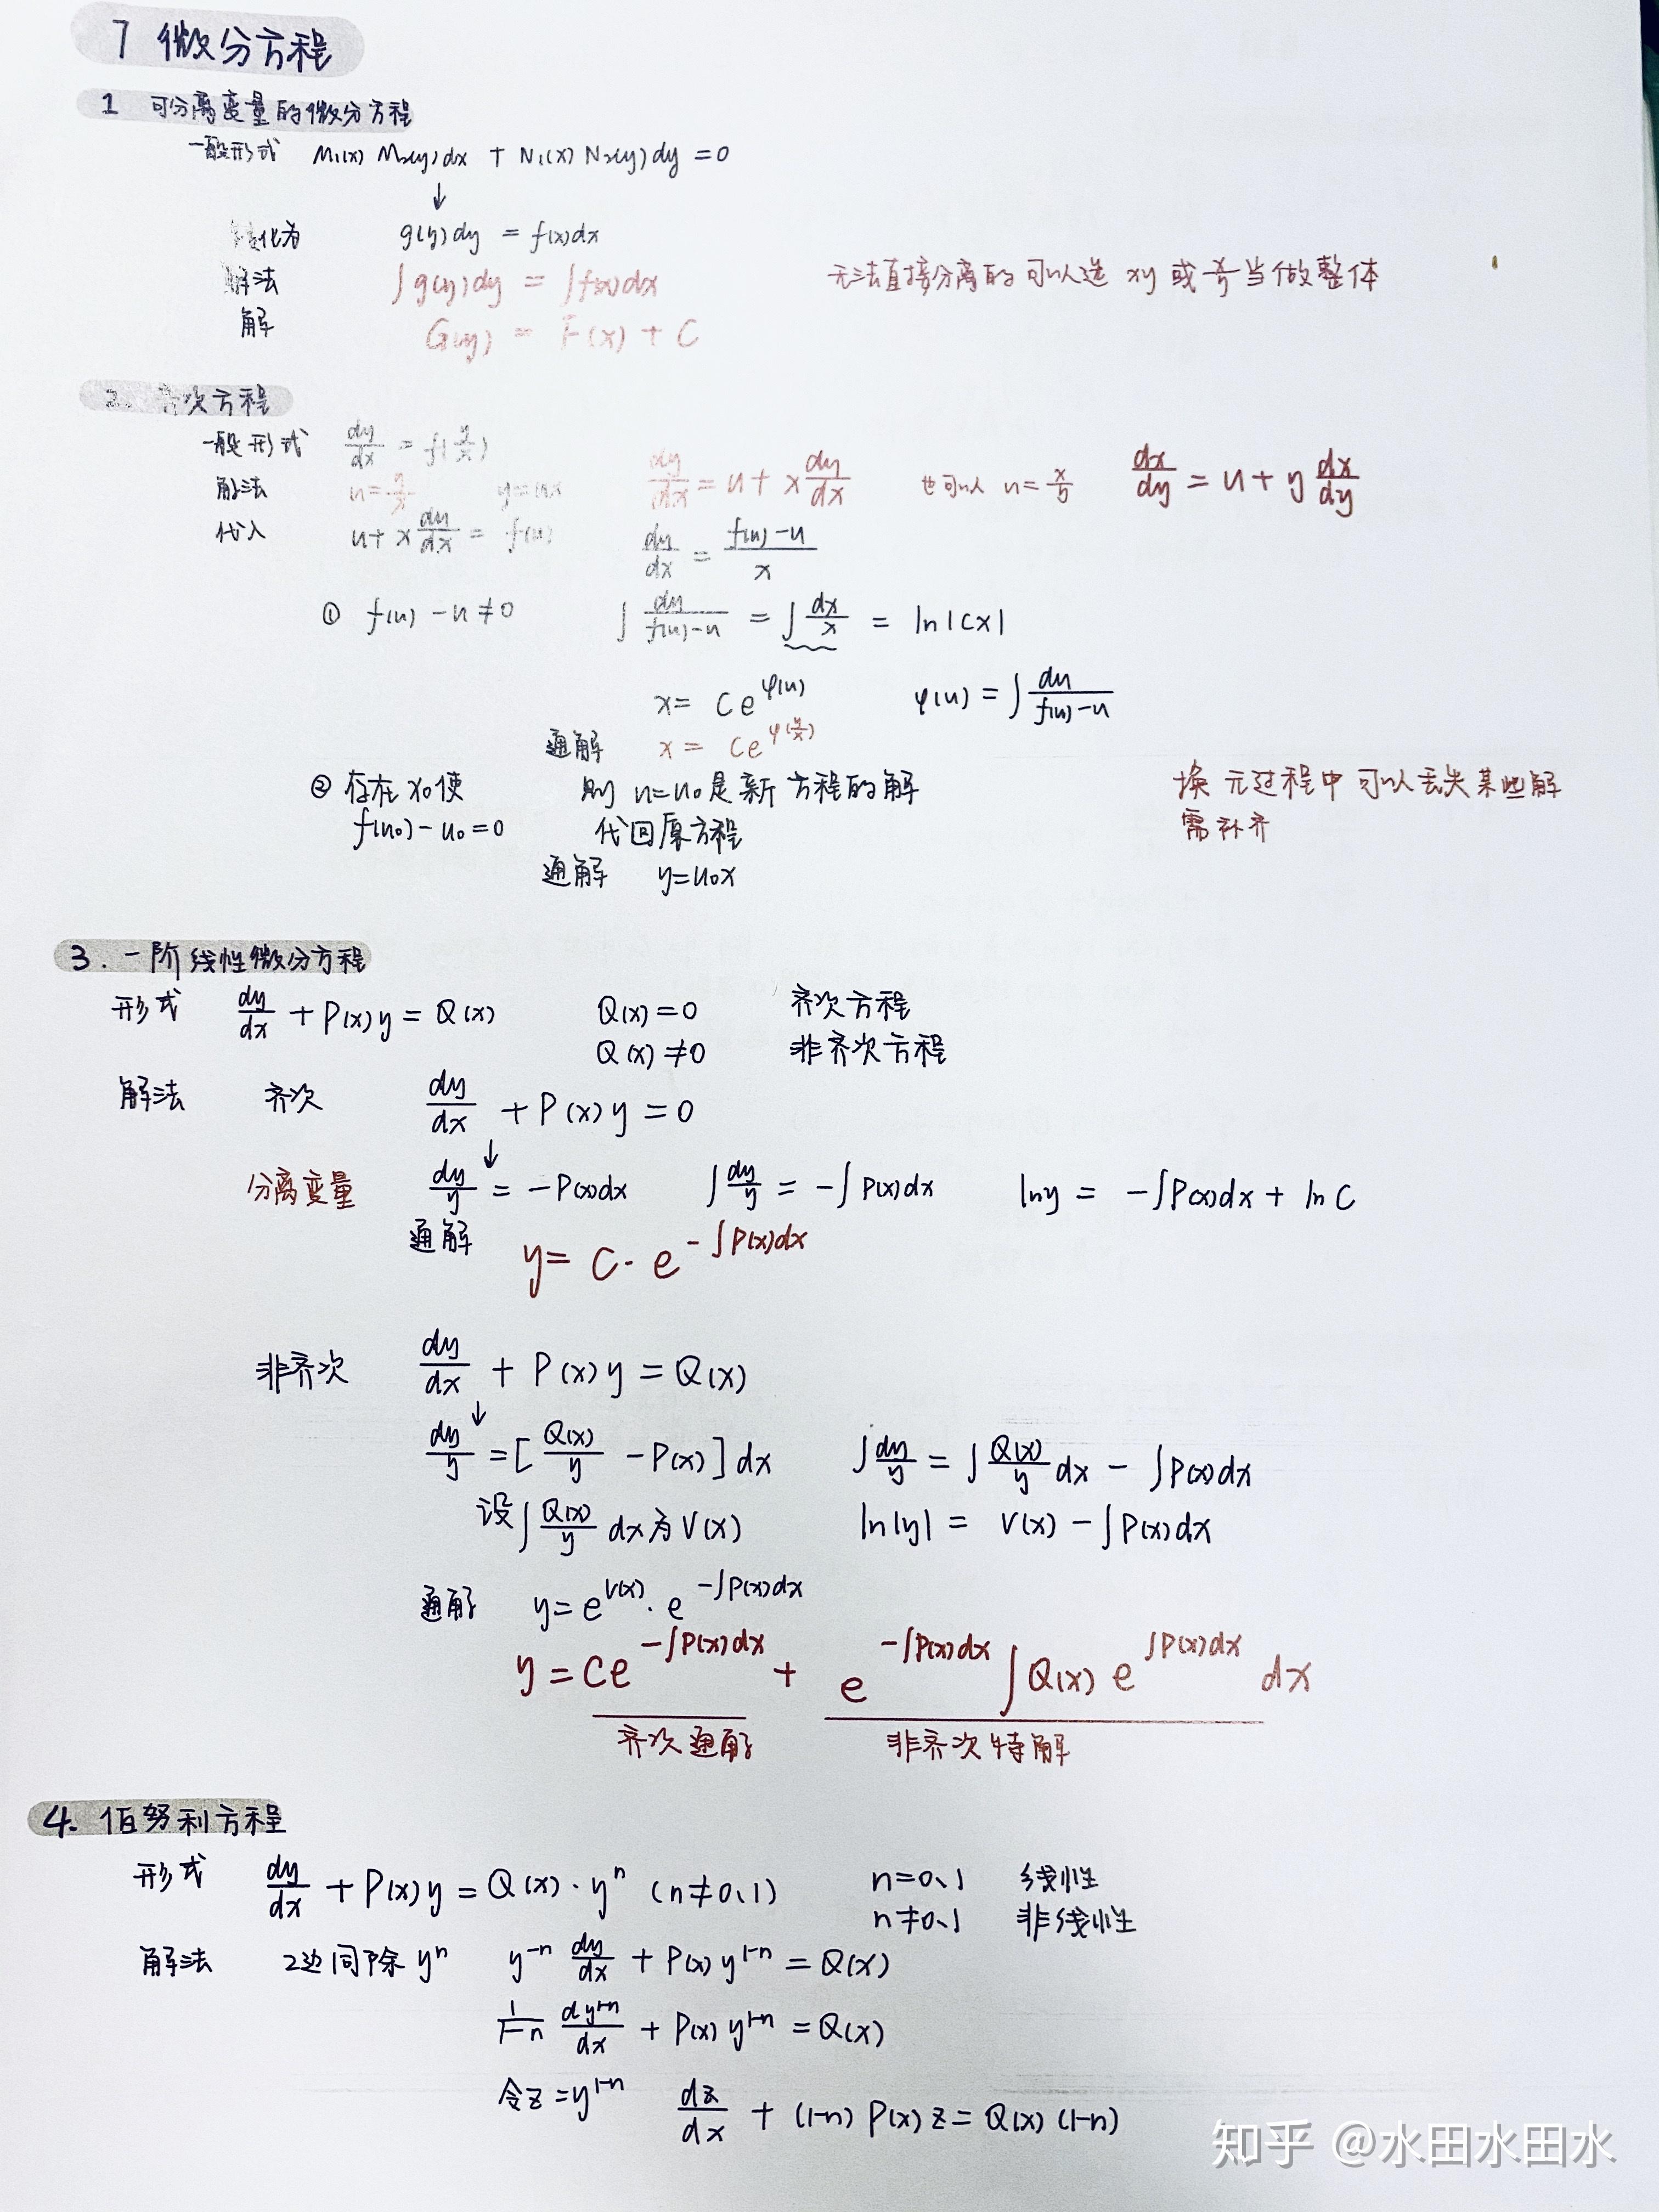 7 微分方程
1 可分离变量的微分方程
一般形式 M₁(x) M₂(y) dx + N₁(x) N₂(y) dy = 0
↓
化为 g(y) dy = f(x) dx
解法 ∫g(y)dy = ∫f(x)dx 无法直接分离的可以选 xy 或 x/y 当做整体
解 G(y) = F(x) + C
2. 齐次方程
一般形式 dy/dx = f(y/x)
解法 u = y/x y = ux dy/dx = u + x dy/dx 也可以 u = x/y dx/dy = u + y dx/dy
代入 u + x dy/dx = f(u) dy/dx = (f(u) - u)/x
① f(u) - u ≠ 0 ∫ du/(f(u) - u) = ∫ dx/x = ln|Cx|
x = Ce^φ(u) φ(u) = ∫ du/(f(u) - u)
通解 x = Ce^φ(y/x)
② 存在 x₀ 使 则 u = u₀ 是新方程的解 换元过程中可以丢失某些解
f(u₀) - u₀ = 0 代回原方程 需补齐
通解 y = u₀x
3. 一阶线性微分方程
形式 dy/dx + P(x)y = Q(x) Q(x) = 0 齐次方程
Q(x) ≠ 0 非齐次方程
解法 齐次 dy/dx + P(x)y = 0
↓
分离变量 dy/y = -P(x)dx ∫dy/y = -∫P(x)dx lny = -∫P(x)dx + lnC
通解 y = C·e^(-∫P(x)dx)
非齐次 dy/dx + P(x)y = Q(x)
↓
dy/y = [Q(x)/y - P(x)]dx ∫dy/y = ∫Q(x)/y dx - ∫P(x)dx
设∫Q(x)/y dx 为 V(x) ln|y| = V(x) - ∫P(x)dx
通解 y = e^V(x)·e^(-∫P(x)dx)
y = Ce^(-∫P(x)dx) + e^(-∫P(x)dx) ∫Q(x) e^(∫P(x)dx) dx
齐次通解 非齐次特解
4. 伯努利方程
形式 dy/dx + P(x)y = Q(x)·yⁿ (n≠0、1) n=0、1 线性
n≠0、1 非线性
解法 2边同除 yⁿ y⁻ⁿ dy/dx + P(x) y¹⁻ⁿ = Q(x)
1/(1-n) dy¹⁻ⁿ/dx + P(x) y¹⁻ⁿ = Q(x)
令z = y¹⁻ⁿ dz/dx + (1-n) P(x) z = Q(x) (1-n)
知乎 @水田水田水